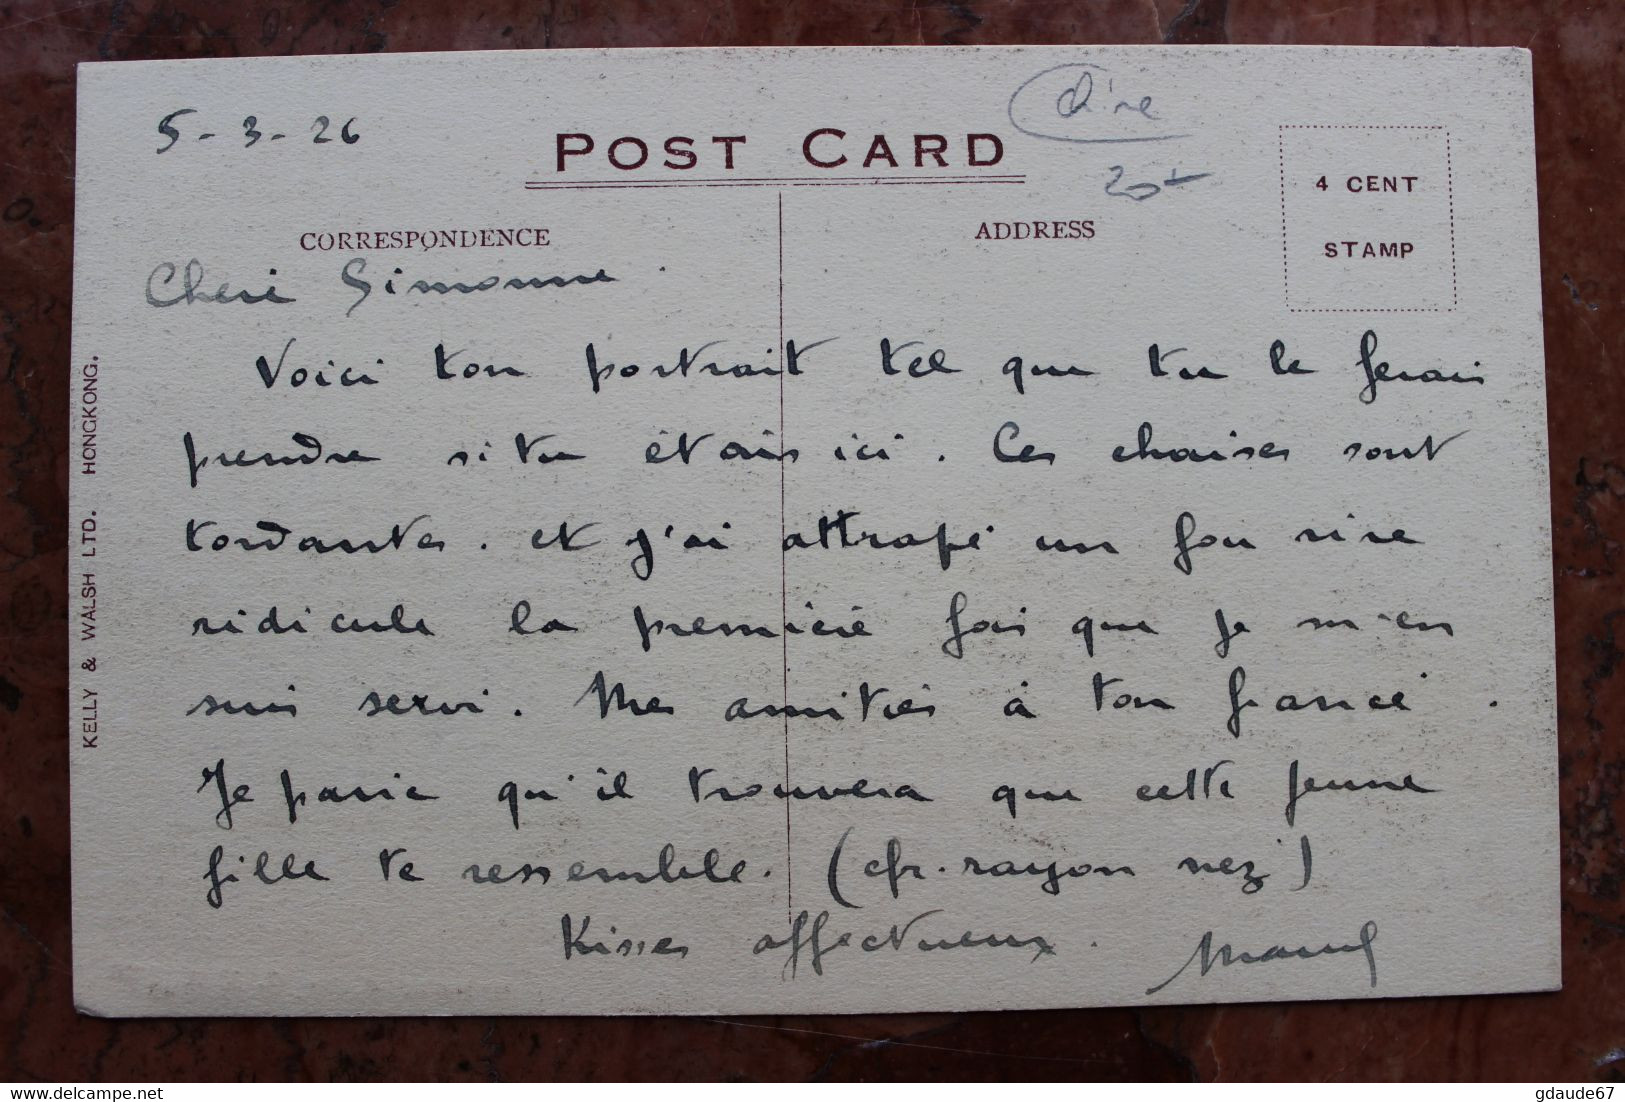 5-3-26
Chine
20
POST CARD
4 CENT
STAMP
CORRESPONDENCE
ADDRESS
Cheri Simonne.
Voici ton portrait tel que tu le ferais
prendre si tu étais ici. Ces chaises sont
tordantes. et j'ai attrapé un fou rire
ridicule la première fois que je m'en
suis servi. Mes amitiés à ton fiancé.
Je parie qu'il trouvera que cette jeune
fille te ressemble. (cfr. rayon nez)
Kisses affectueux. Marcel
KELLY & WALSH LTD. HONGKONG.
delcampe.net
gdaude67